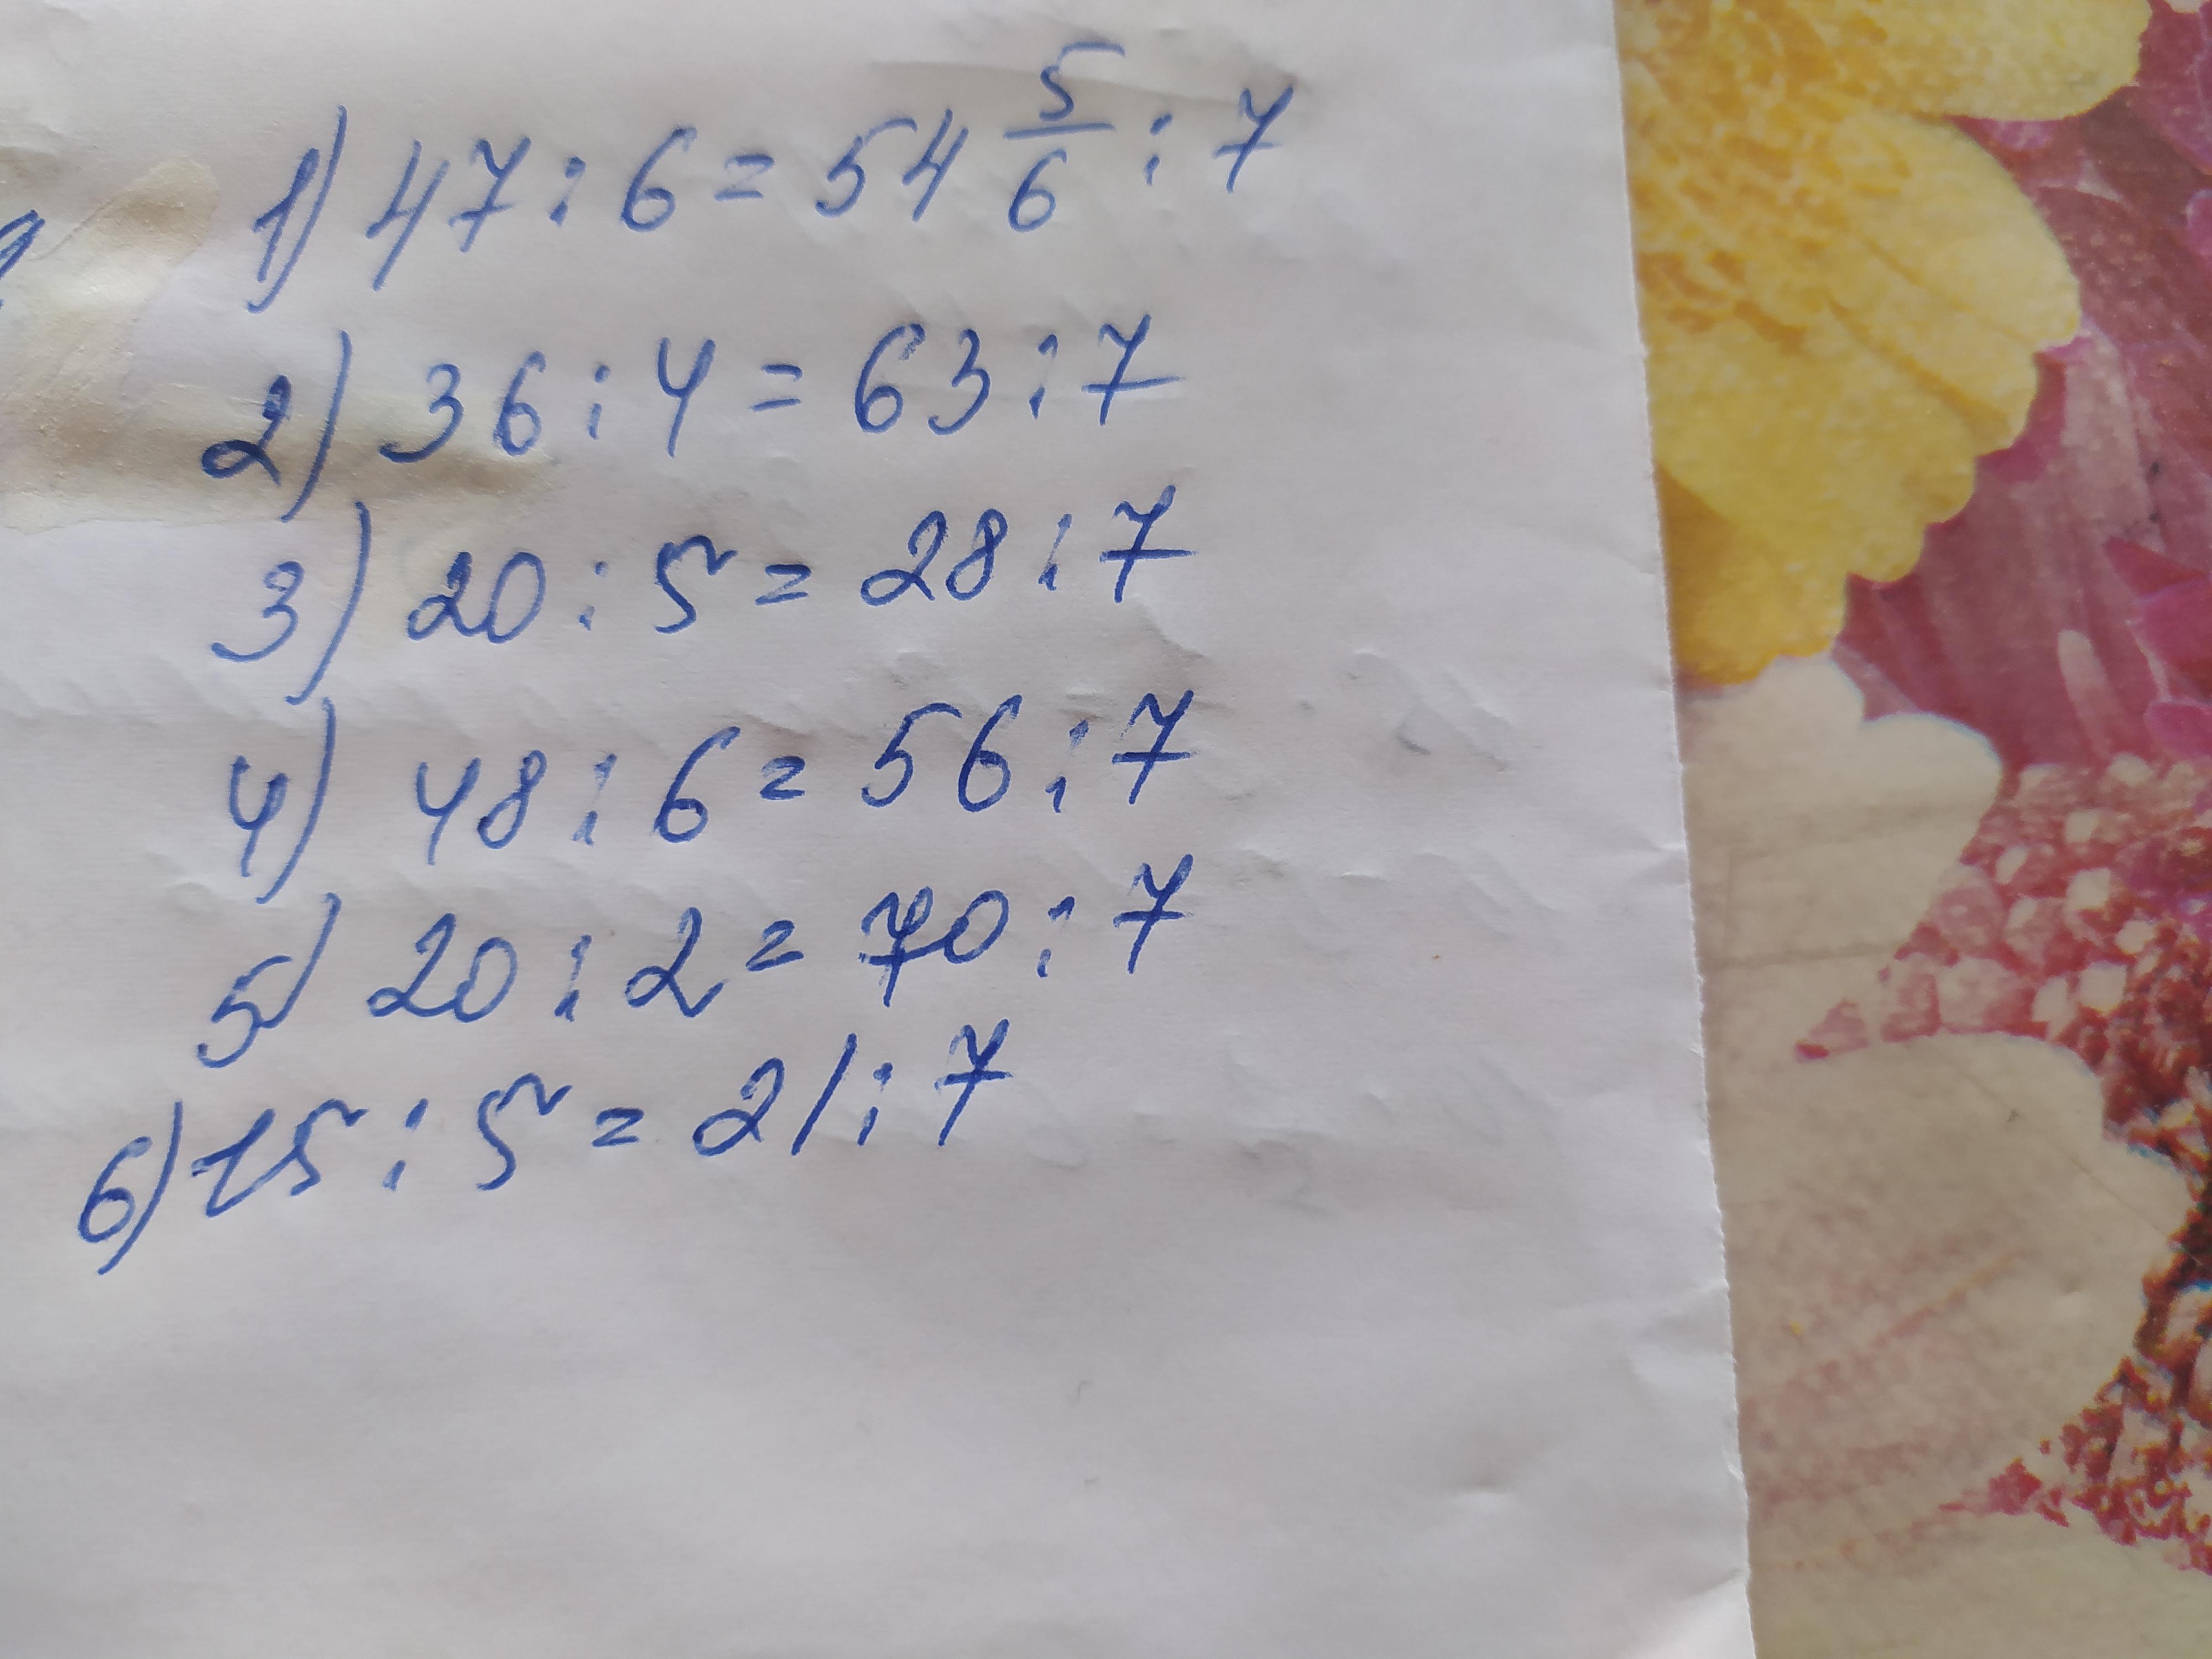 1) 47 : 6 = 54 5/6 : 7
2) 36 : 4 = 63 : 7
3) 20 : 5 = 28 : 7
4) 48 : 6 = 56 : 7
5) 20 : 2 = 70 : 7
6) 15 : 5 = 21 : 7